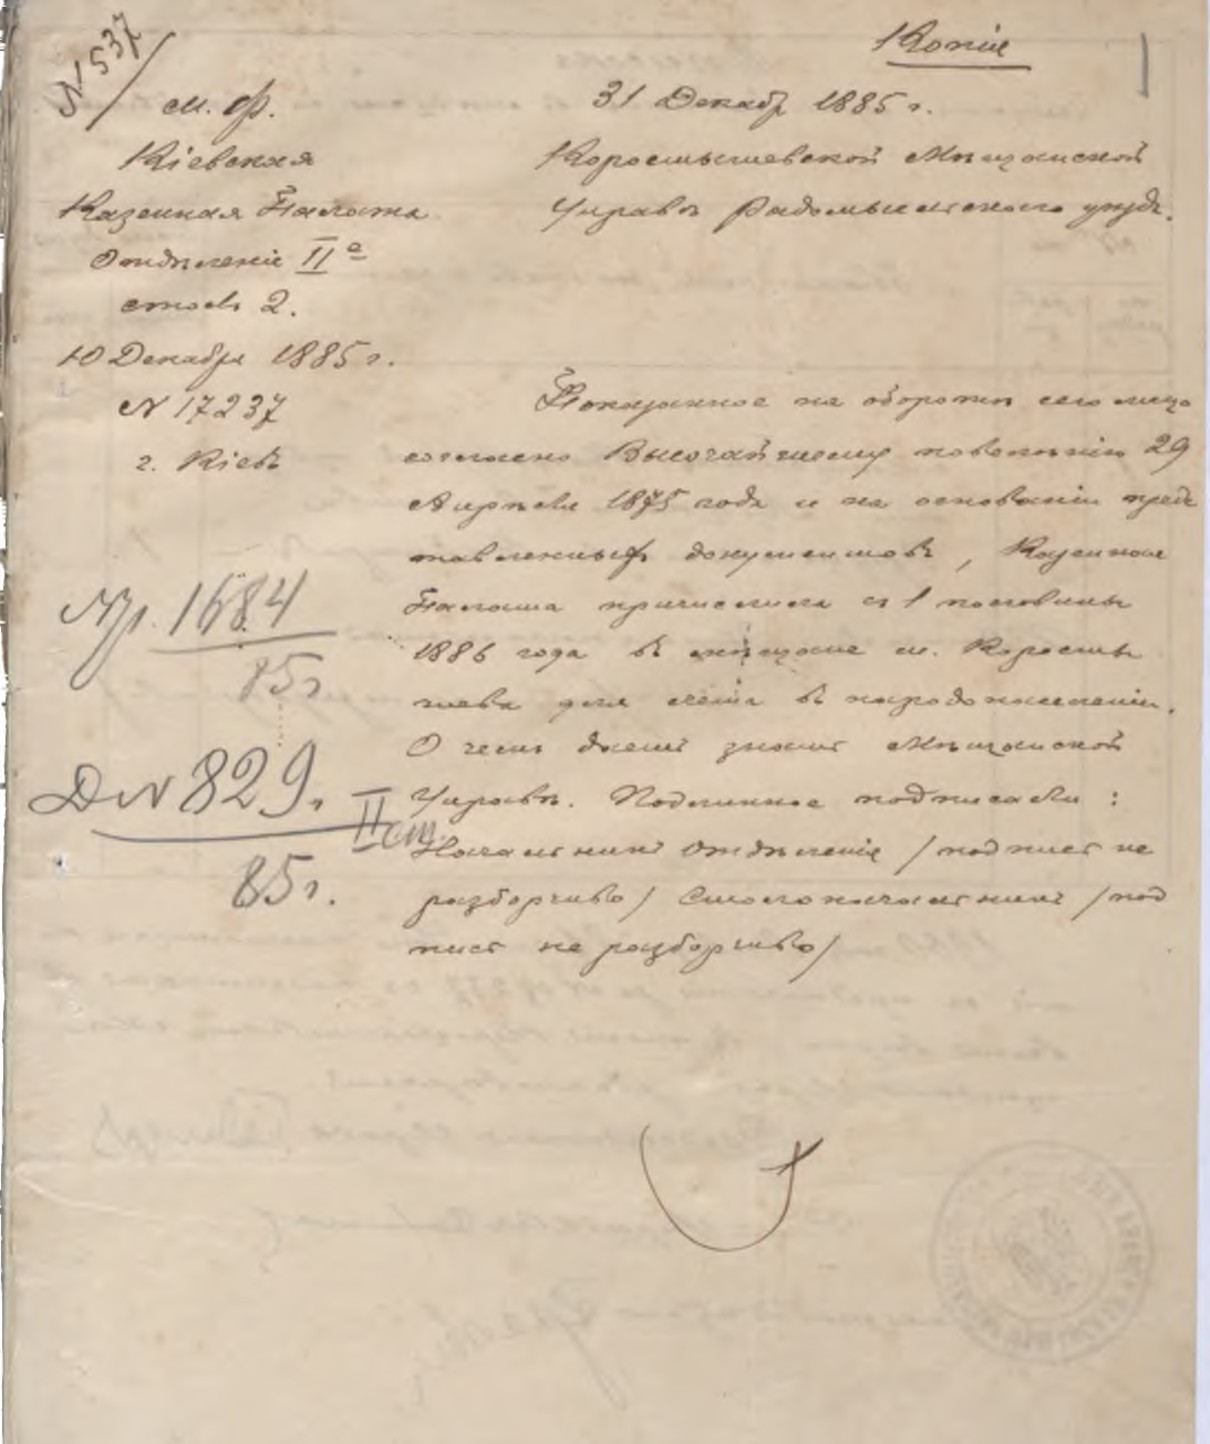 N 537
Копія
м. Ф.
Кіевская
Казенная Палата
Отдѣленіе II е
столъ 2.
10 Декабря 1885 г.
N 17237
г. Кіевъ
31 Декабр 1885 г.
Коростышевской Мѣщанской
Управѣ Радомысльскаго уѣзда.
Показанное на оборотѣ сего лицо
согласно Высочайшему повелѣнію 29
Апрѣля 1875 года и на основаніи пред
тавленныхъ документовъ, Казенная
Палата причислила съ 1 половины
1886 года въ мѣщане м. Коросты
шева для счета въ народонаселеніи.
О чемъ даетъ знать Мѣщанской
Управѣ. Подлинное подписали:
Начальникъ Отдѣленія /подпись не
разборчиво/ Столоначальникъ /под
пись не разборчиво/
1684
85 г
Д N 829. II ст.
85 г.